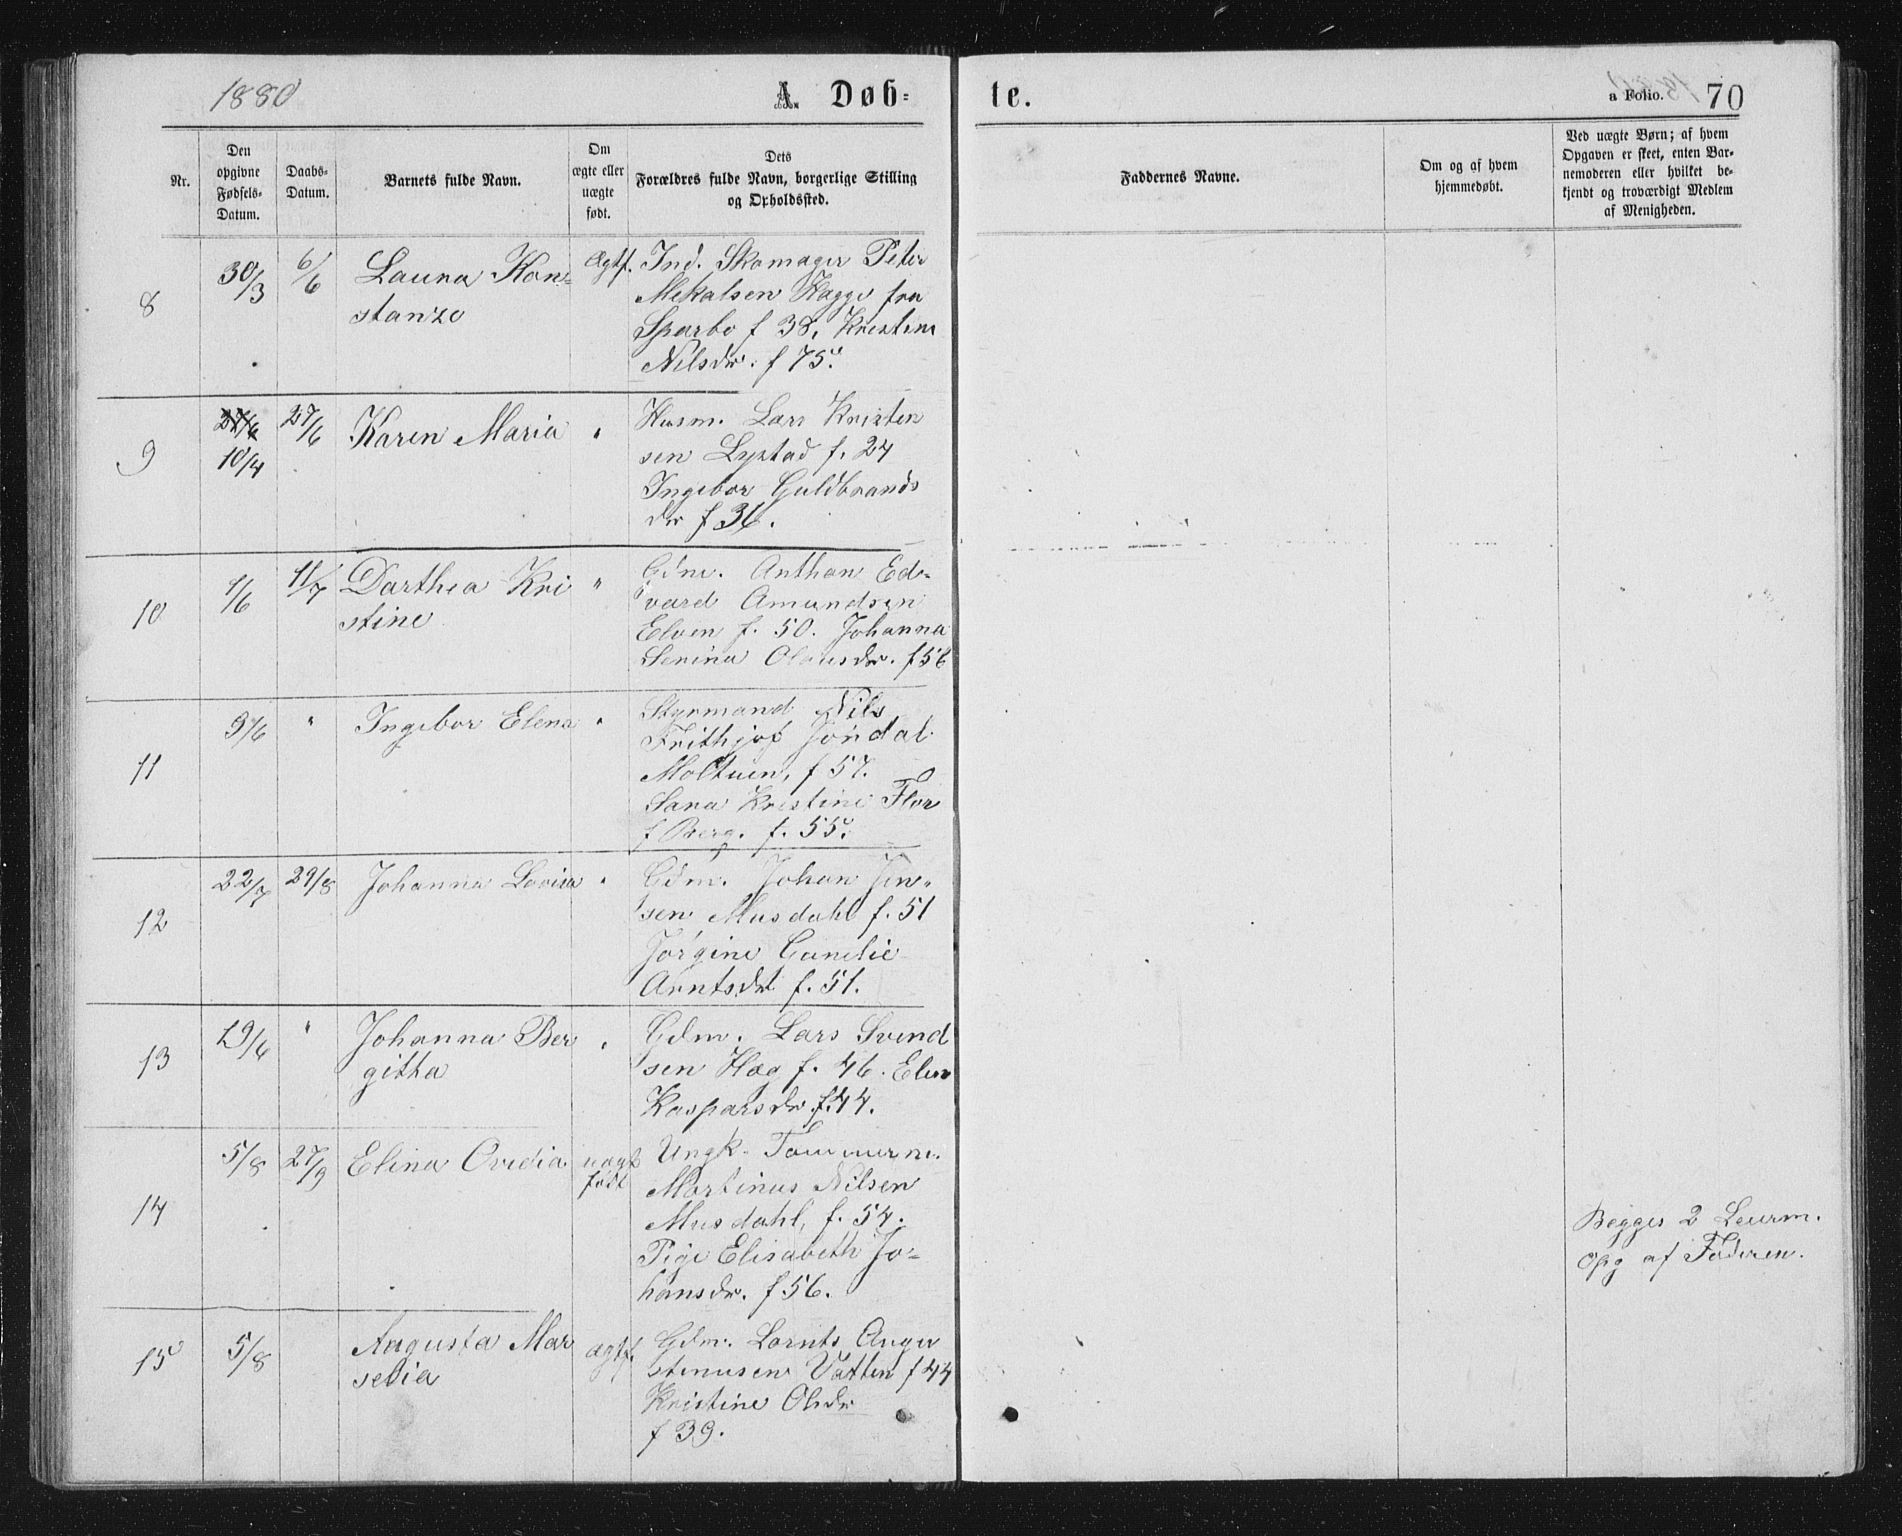 1880
A. Døb-
te.
a Folio. 70
Nr.
Den opgivne Fødsels-Datum.
Daabs-Datum.
Barnets fulde Navn.
Om ægte eller uægte født.
Dets Forældres fulde Navn, borgerlige Stilling og Opholdssted.
Faddernes Navne.
Om og af hvem hjemmedøbt.
Ved uægte Børn; af hvem Opgaven er skeet, enten Barnemoderen eller hvilket bekjendt og troværdigt Medlem af Menigheden.
8 30/3 6/6 Laura Kon-
stanze
Ægtf. Ind. Skomager Peter
Mekalsen Hagge fra
Sparbo f 38, Kristine
Nilsdr. f 75.
9 27/6 10/4 27/6 Karen Maria "
Husm. Lars Kristen
sen Lystad f. 24
Ingebor Guldbrands
dr f 36.
10 1/6 11/7 Darthea Kri
stine "
Gdm. Anthon Ed-
vard Amundsen
Elven f. 50. Johanna
Serina Olausdr. f 56
11 9/6 " Ingebor Elena "
Styrmand Nils
Frithjof Jørdal
f 57.
Sara Kristine Flor
f Berg. f. 55.
12 22/7 29/8 Johanna Lovisa "
Gdm. Johan Jen-
sen Musdahl f. 51
Jørgine
Arntsdt f. 51.
13 19/6 " Johanna Ber
githa "
Gdm. Lars Svend
sen Hag f. 46. Elen
Kasparsdr. f. 44.
14 5/8 27/9 Elina Ovidia uægt
født
Ungk. Tømmerm.
Martinus Nilsen
Musdahl, f. 54.
Pige Elisabeth Jo-
hansdr. f 56.
Begges 2 Leierm.
Opg af Faderen.
15 5/8 Augusta Mar
selia
ægtf.
Gdm. Lornts Augu
stinusen Vatten f 44
Kristine Olsdr
f 39.